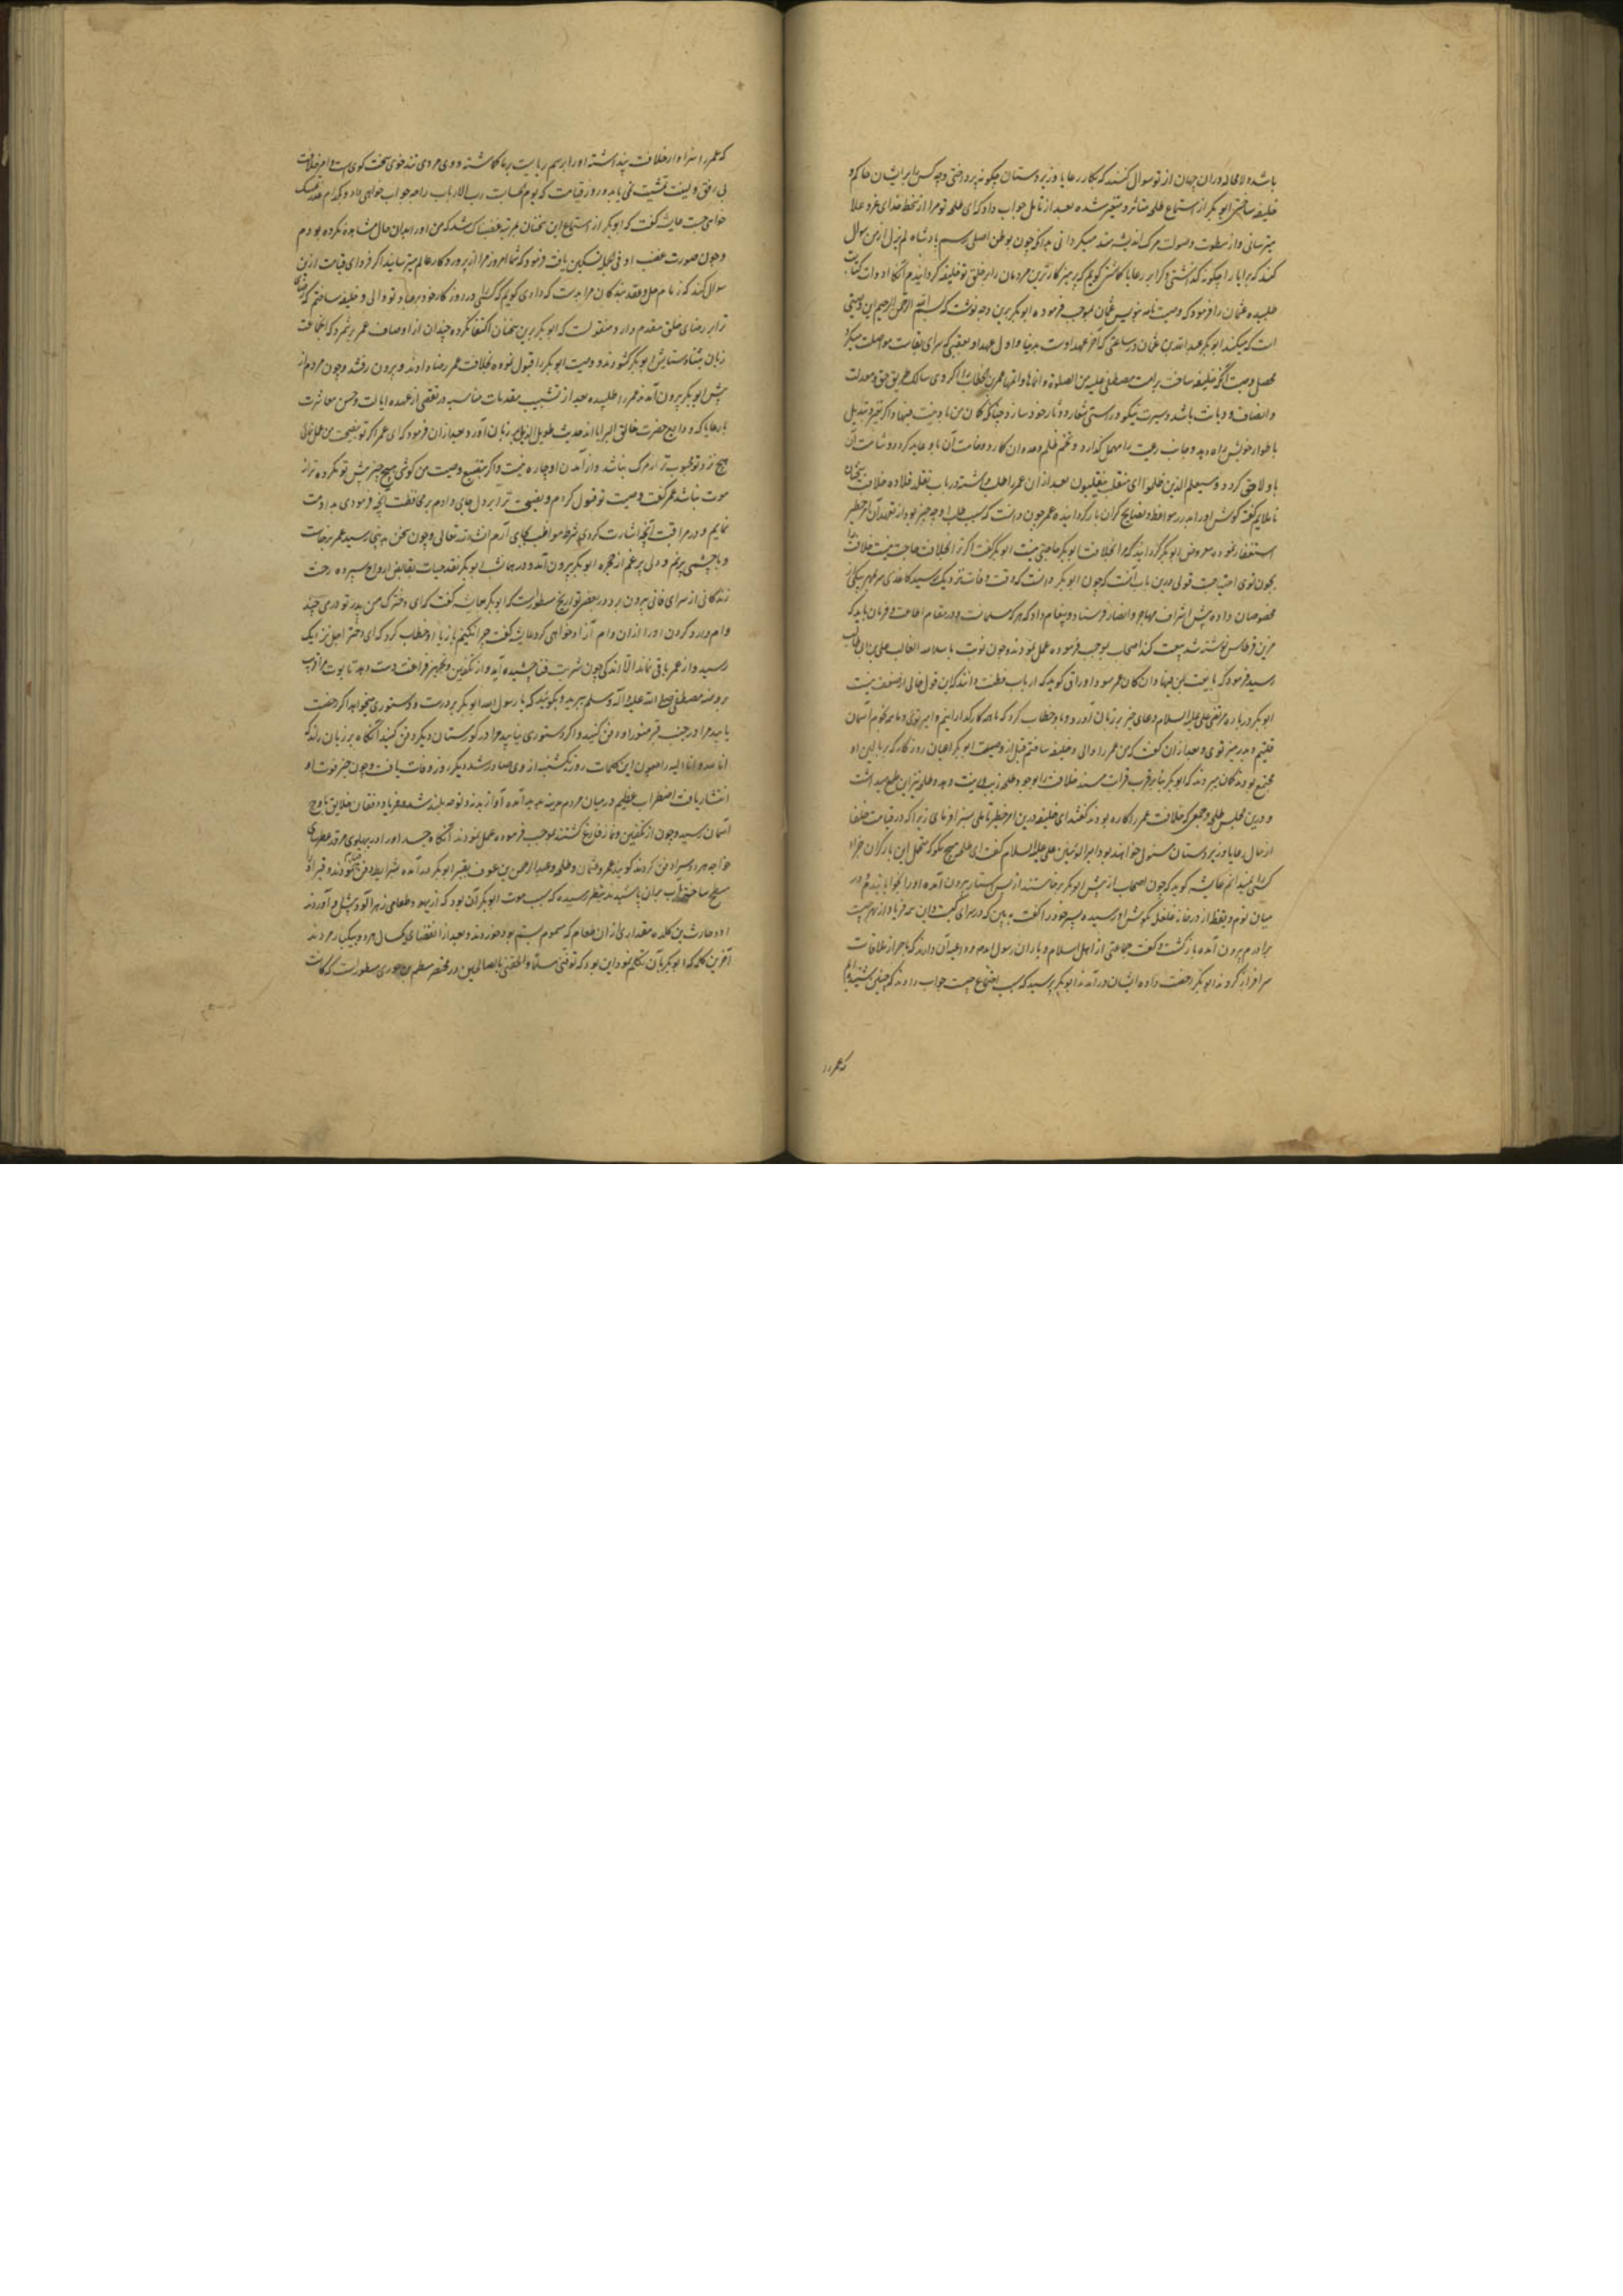 باشد و لامحاله داوران جهان از تو سوال کنند که بکار رعایا و زیردستان چگونه پرداختی و چه کس را بر ایشان حاکم و
خلیفه ساختی ابوبکر از استماع طلحه متاثر و متغیر شده بعد از تامل جواب داد که ای طلحه تو مرا از سخط خدای عز و علا
میترسانی و از سطوت و صولت مرگ اندیشه مند میگردانی بدانکه چون بوطن اصلی رسم پادشاه لم یزل از من سوال
کند که برایا را چگونه گذاشتی و کرا بر رعایا گماشتی گویم که پرهیزکارترین مردمان را بر خلق تو خلیفه گردانیدم آنگاه ادوات کتابت
طلبیده عثمان را فرمود که وصیت نامه بنویس عثمان بموجب فرموده ابوبکر برین وجه نوشت که بسم الله الرحمن الرحیم این وصیتی
است که میکند ابوبکر عبدالله بن عثمان در ساعتی که آخر عهد اوست بدنیا و اول عهد او بعقبی که سرای بقاست مواصلت میگرد
محصل وصیت آنکه خلیفه ساخت بر امت مصطفی علیه من الصلوة انماها و اتمها عمر بن خطاب را اگر وی سالک طریق حق و معدلت
و انصاف و دیانت باشد و سیرت نیکو و راستی شعار و دثار خود سازد چنانکه گمان من باوست فبها و اگر تغیر و تبدیل
باطوار خویش راه دهد و جانب رعیت را مهمل گذارد و تخم ظلم و عدوان کارد وخامت آن باو عاید گردد و شامت آن
باو لاحق گردد و سیعلم الذین ظلموا ای منقلب ینقلبون بعد از ان عمر را طلب داشته در باب تقلد قلاده خلافت سخنان
ناملایم گفته گوش او را بدرر مواعظ و نصایح گران بار گردانیده عمر چون دانست که سبب طلب او چه چیز بود از تعهد آن امر خطیر
استعفا نموده معروض ابوبکر گردانید که مرا بخلافت ابوبکر حاجتی نیست ابوبکر گفت اگر ترا بخلافت حاجت نیست خلافت را
بچون توی احتیاجست قولی درین باب آنست که چون ابوبکر دانست که وقت وفات نزدیک رسید کاغذی سر بمهر بیکی از
مخصوصان داده پیش اشراف مهاجر و انصار فرستاد و پیغام داد که هر که مسلمانست و در مقام اطاعت و فرمان باید که
مرین قرطاس نوشته شد بیعت کند اصحاب بموجب فرموده عمل نمودند و چون نوبت باسد الله الغالب علی بن ابی طالب
رسید فرمود که بایعت لمن فیها وان کان عمر سود اوراق گوید که ارباب فطنت دانند که این قول خالی از ضعف نیست
ابوبکر درباره مرتضی علی علیه السلام دعای خیر بر زبان آورد و باو خطاب کرد که
و بعد از ان گفت که من عمر را والی و خلیفه ساختم قبل از وصیت ابوبکر اعیان روزگار که بر بالین او
مجتمع بودند گمان میبردند که ابوبکر بنابر قرب قرابت مسند خلافت را بوجود طلحه زیب و زینت دهد و طلحه نیز این طمع میداشت
و درین مجلس طلحه و جمعی که خلافت عمر را کاره بودند گفتند ای خلیفه درین امر خطیر تاملی بسزا فرمای زیرا که در قیامت خلفا
از حال رعایا و زیردستان مسئول خواهند بود امیر المومنین علی علیه السلام گفت ای طلحه هیچ مگو که متحمل این بار گران جز او
کسی را نمیدانم عایشه گوید که چون اصحاب از پیش ابوبکر برخاستند از پس ستار بیرون آمده او را بخوابانیدم و در
میان نوم و یقظه از در خانه غلغل بگوش او رسیده پسر خود را گفت ببین که در سرای کیست و این همه فریاد از بهر چیست
برادرم بیرون آمده بازگشت و گفت جماعتی از اهل اسلام و یاران رسول الله بر در داعیه آن دارند که باحراز ملاقات
سرافراز گردند ابوبکر رخصت داده ایشان درآمدند ابوبکر پرسید که سبب اجتماع چیست جواب دادند که چنین شنیده ایم
که عمر را
که عمر را سزاوار خلافت پنداشته او را برسم ریاست بر ما گماشته و وی مردی تند خوی سخت گوی است و امر خلافت
بی رفق و لینت تمشیت نمی یابد و روز قیامت که یوم الحساب است رب الارباب را چه جواب خواهی داد و بکدام عذر تمسک
خواهی جست عایشه گفت که ابوبکر از استماع این سخنان بمرتبه غضبناک شد که من او را بدان حال مشاهده نکرده بودم
و چون صورت غضب او فی الجمله تسکین یافت فرمود که شما امروز مرا از پروردگار عالم میترسانید اگر فردای قیامت از من
سوال کند که زمام حل و عقد بندگان مرا بدست که دادی گویم که کسی را در روزگار خود بر عباد تو والی و خلیفه ساختم که رضای
ترا بر رضای خلق مقدم دارد و منقولست که ابوبکر برین سخنان اکتفا نکرده چندان از اوصاف عمر برشمرد که آن جماعت
زبان بثنا و ستایش ابوبکر گشودند و وصیت ابوبکر را قبول نموده بخلافت عمر رضا دادند و بیرون رفتند و چون مردم از
پیش ابوبکر بیرون آمدند عمر را طلبیده بعد از تشبیب مقدمات مناسبه در تفصی از عهده ایالت و حسن معاشرت
با رعایا که ودایع حضرت خالق البرایا اند حدیث طویل الذیل بر زبان آورد و بعد از ان فرمود که ای عمر اگر تو بنصیحت من عمل نمائی
هیچ نزد تو محبوب تر از مرگ نباشد و از آمدن او چاره نیست و اگر بتضییع وصیت من کوشی هیچ چیز پیش تو مکروه تر از
موت نباشد عمر گفت وصیت تو قبول کردم و نصیحت ترا بر دل جای دادم بر محافظت آنچه فرمودی مداومت
نمایم و در مراقبت آنچه اشارت کردی شرط مواظبت بجای آرم انشاء الله تعالی و چون سخن بدینجا رسید عمر برخاست
و با چشمی پرنم و دلی پرغم از حجره ابوبکر بیرون آمد و در همان شب ابوبکر نقد حیات بقابض ارواح سپرده رخت
زندگانی از سرای فانی بیرون برد و در بعضی تواریخ مسطورست که ابوبکر عایشه گفت که ای دخترک من پدر تو درمی چند
وام دارد گردن او را از ان وام آزاد خواهی کرد عایشه گفت چرا نکنم باز با او خطاب کرد که ای دختر اجل نزدیک
رسید و از عمر باقی نماند الا اندکی چون شربت فنا چشیده آید و از تکفین و تجهیز فراغت دست دهد تابوت مرا
بروضه مصطفی صلی الله علیه و آله و سلم ببرید و بگوئید که یا رسول الله ابوبکر بر درست و دستوری میخواهد اگر رخصت
یابید مرا در جنب قبر منور او دفن کنید و اگر دستوری نیابید مرا در گورستان دیگر دفن کنید آنگاه بر زبان راند که
انا لله و انا الیه راجعون این کلمات روز یکشنبه از وی صادر شد دیگر روز وفات یافت و چون خبر فوت او
انتشار یافت اضطراب عظیم در میان مردم مدینه پدید آمده آواز ندبه و نوحه بلند شد و فریاد و فغان خلایق باوج
آسمان رسید و چون از تکفین و نماز فارغ گشتند بموجب فرموده عمل نمودند آنگاه جسد او را در پهلوی مرقد معطر
خواجه هر دو سرا دفن کردند گویند عمر و عثمان و طلحه و عبدالرحمن بن عوف بقبر ابوبکر درآمده شرایط دفن بجا نمودند و قبر او
مسطح ساخته آب بر ان پاشیدند بنظر رسیده که سبب موت ابوبکر آن بود که از یهود طعامی زهرآلود پیش او آوردند
او و حارث بن کلده مقداری از ان طعام که مسموم بسم بود خوردند و بعد از انقضای یکسال هر دو بیکبار مردند
آخرین کلمه که ابوبکر بآن تکلم نمود این بود که توفنی مسلما و الحقنی بالصالحین در مختصر سطورست که کانت